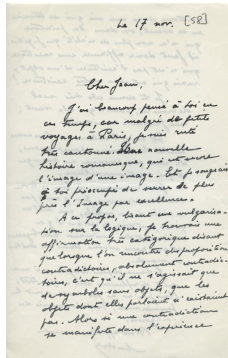 Le 17 nov. [58]
Cher Jean,
J'ai beaucoup pensé à toi en
ces temps, car malgré de petits
voyages à Paris, je suis resté
très cantonné dans nouvelle
histoire romanesque, qui est encore
l'image d'une image. Et je songeais
à toi préoccupé de serrer de plus
près l'Image par excellence.
A ce propos, lisant une vulgarisa-
tion sur la logique, je trouvais une
affirmation très catégorique disant
que lorsque l'on rencontre des propositions
contradictoires, absolument contradic-
toires, c'est qu'il ne s'agissait que
de symboles sans objets, que les
objets dont elles parlaient n'existaient
pas. Alors si une contradiction
se manifeste dans l'expérience